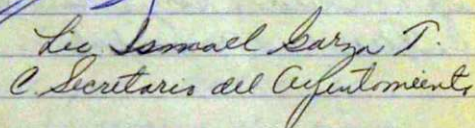 Lic Ismael Garza T.
C. Secretario del Ayuntamiento